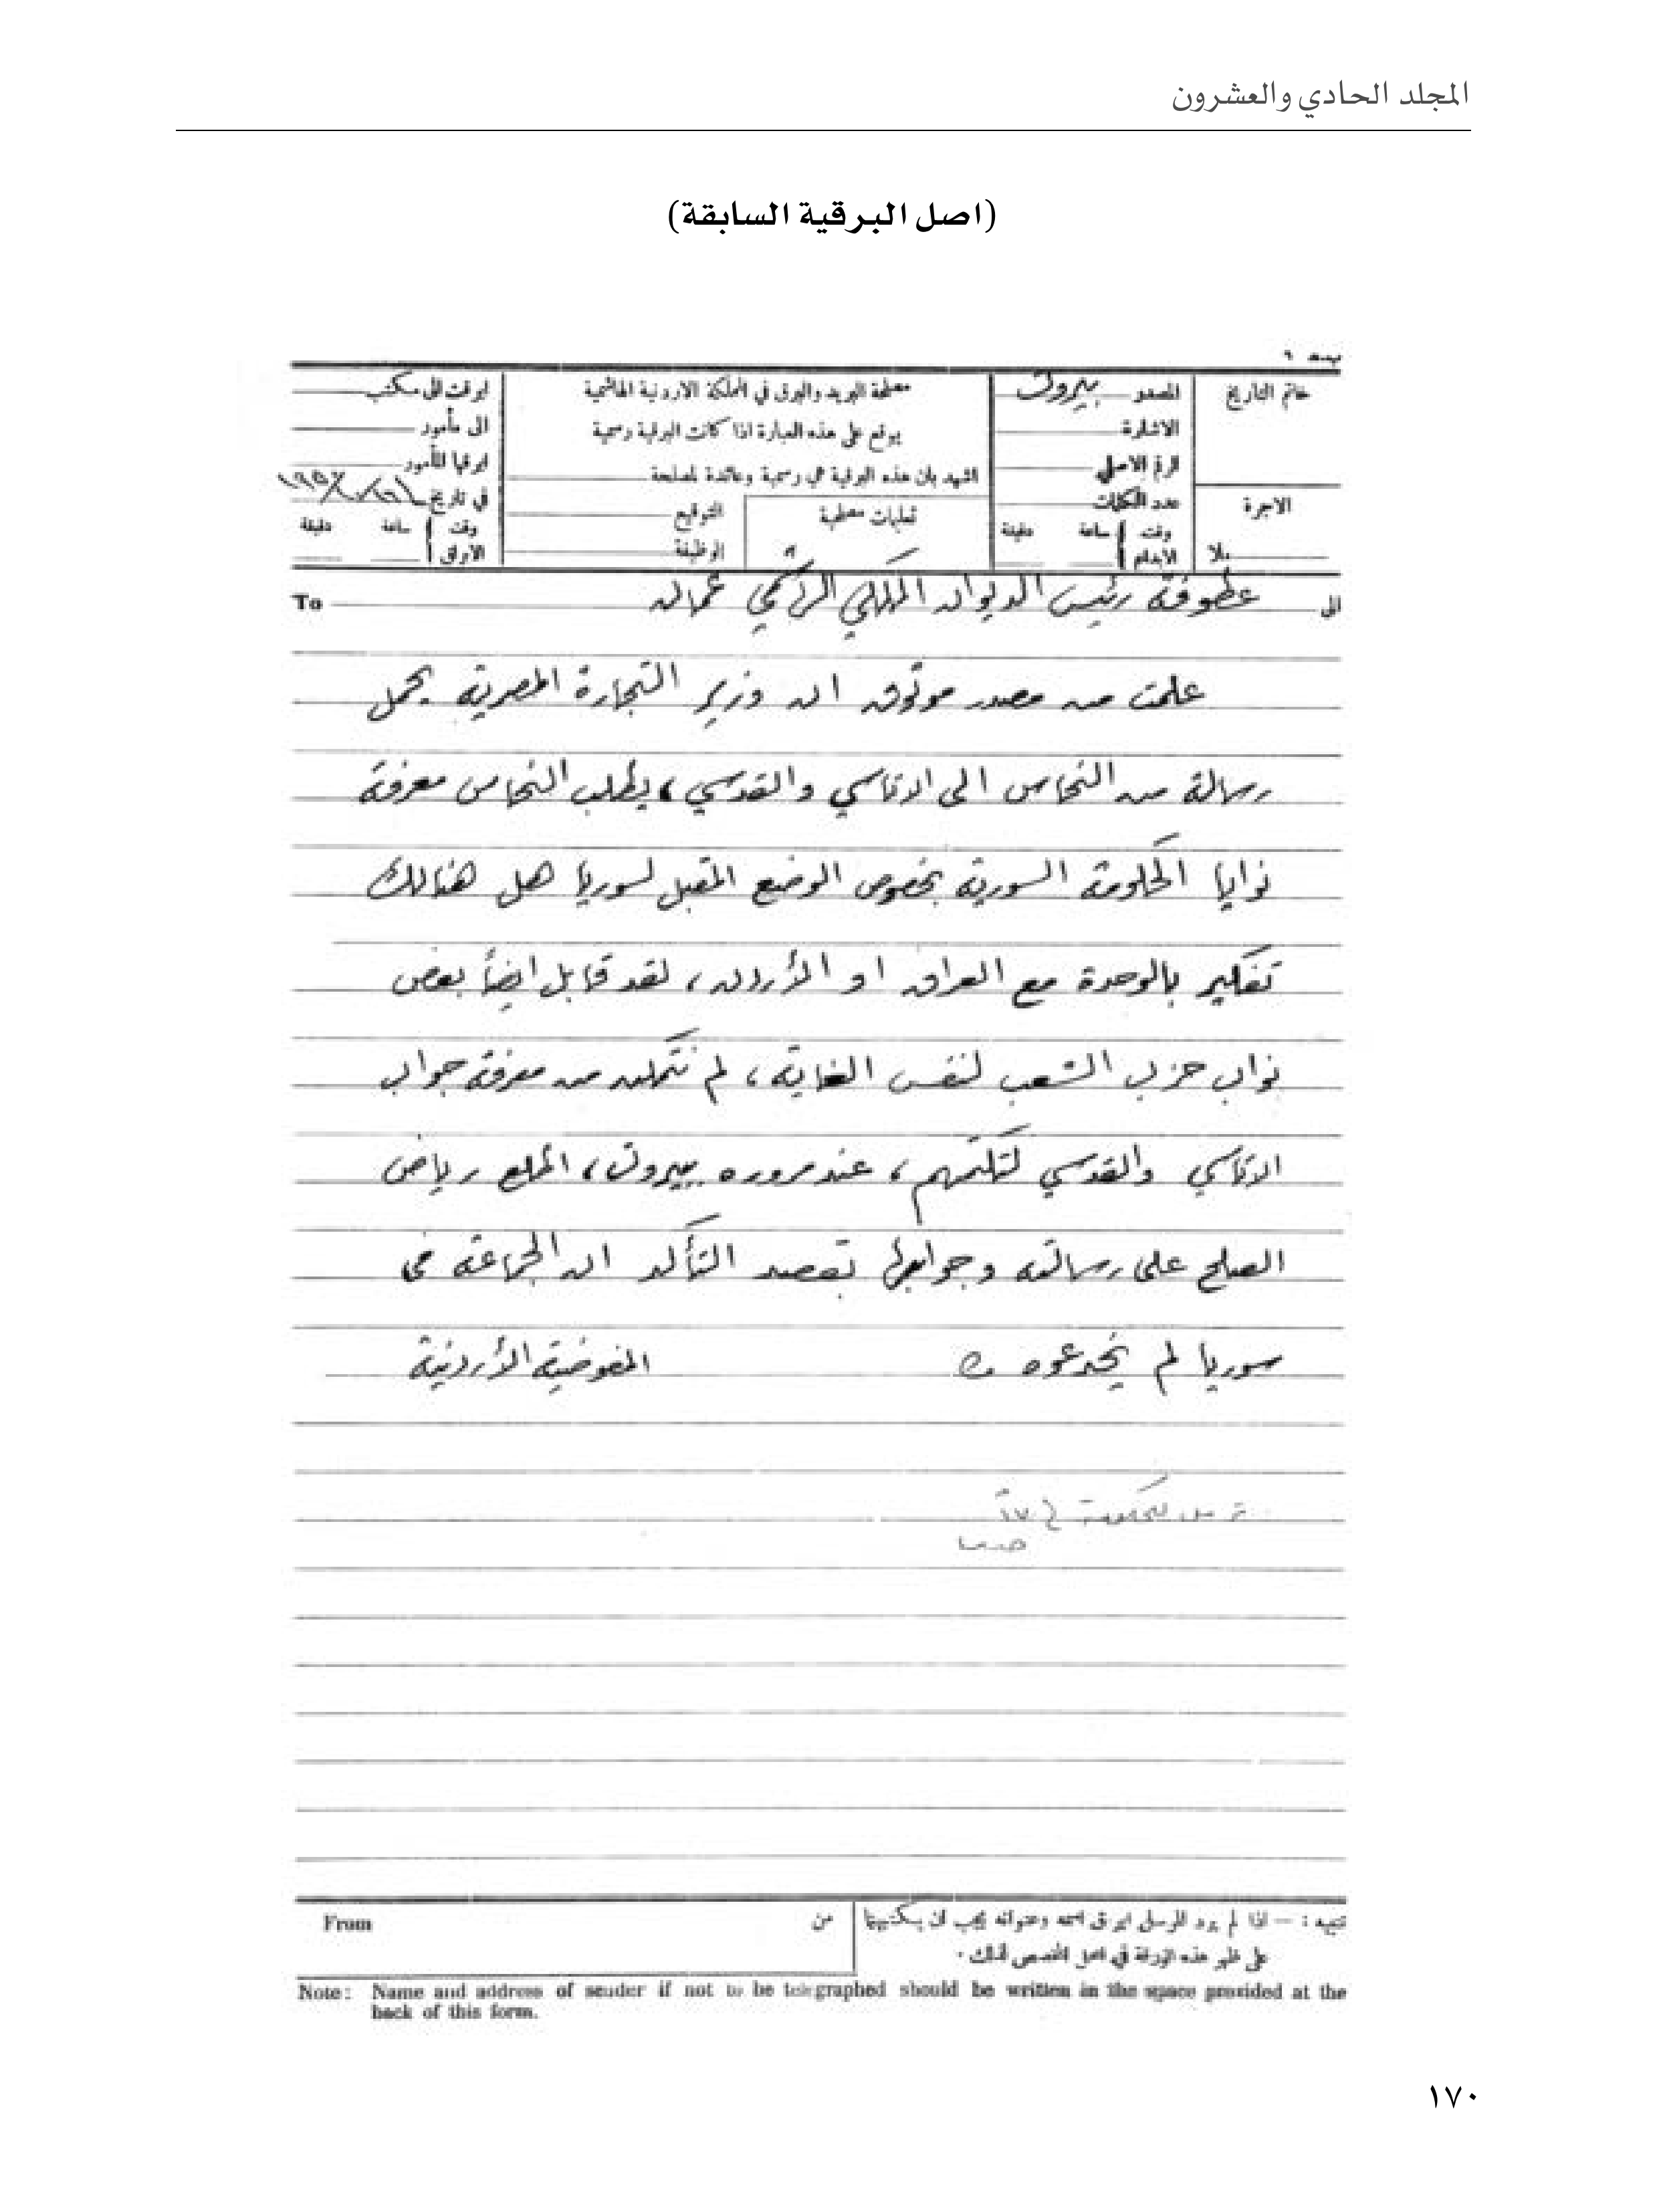 المجلد الحادي والعشرون
(اصل البرقية السابقة)
خاتم التاريخ
الاجرة
بلا
المصدر بيروت
الاشارة
الرقم الاصلي
عدد الكلمات
وقت الايداع ساعة دقيقة
مصلحة البريد والبرق في المملكة الاردنية الهاشمية
يوقع على هذه العبارة اذا كانت البرقية رسمية
اشهد بان هذه البرقية هي رسمية وعائدة لمصلحة
تعليمات مصلحية
التوقيع
الوظيفة
ابرقت الى مكتب
الى مأمور
ابرقها المأمور
في تاريخ
وقت الابراق ساعة دقيقة
الى عطوفة رئيس الديوان الملكي الهاشمي عمان To
علمت من مصدر موثوق ان وزير التجارة المصرية يحمل
رسالة من النحاس الى الاتاسي والقدسي، يطلب النحاس معرفة
نوايا الحكومة السورية بخصوص الوضع المقبل لسوريا هل هنالك
تفكير بالوحدة مع العراق او الأردن، لقد قابل ايضاً بعض
نواب حزب الشعب لنفس الغاية، لم نتمكن من معرفة جواب
الاتاسي والقدسي لتكتمهم، عند مروره ببيروت، اطلع رياض
الصلح على رسالته وجوابها بقصد التأكد ان الجماعة في
سوريا لم يخدعوه
المفوضية الأردنية
From
من
تنبيه : — اذا لم يرد المرسل ابراق اسمه وعنوانه يجب ان يكتبهما
على ظهر هذه الورقة في المحل المخصص لذلك .
Note: Name and address of sender if not to be telegraphed should be written in the space provided at the
back of this form.
١٧٠